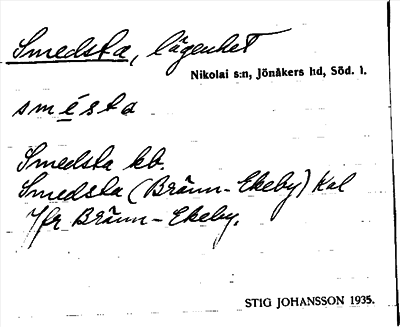 Smedsta, lägenhet
Nikolai s:n, Jönåkers hd, Söd. l.
smésta
Smedsta kb.
Smedsta (Bränn-Ekeby) Kal
Jfr Bränn-Ekeby.
STIG JOHANSSON 1935.